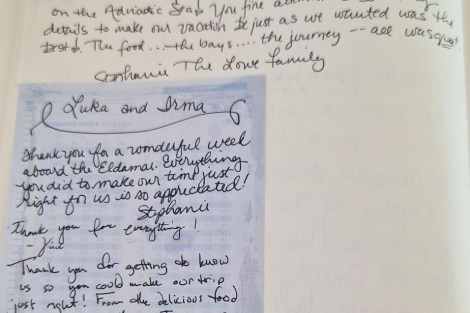 on the Adriatic Sea. You fine
details to make our vacation be just as we wanted was the
best. The food... the bays.... the journey -- all was just
Stephanie The Lowe family
Luka and Irma
Thank you for a wonderful week
aboard the Eldamar. Everything
you did to make our time just
right for us is so appreciated!
Stephanie
Thank you for everything!
Thank you for getting to know
us so you could make our trip
just right! From the delicious food